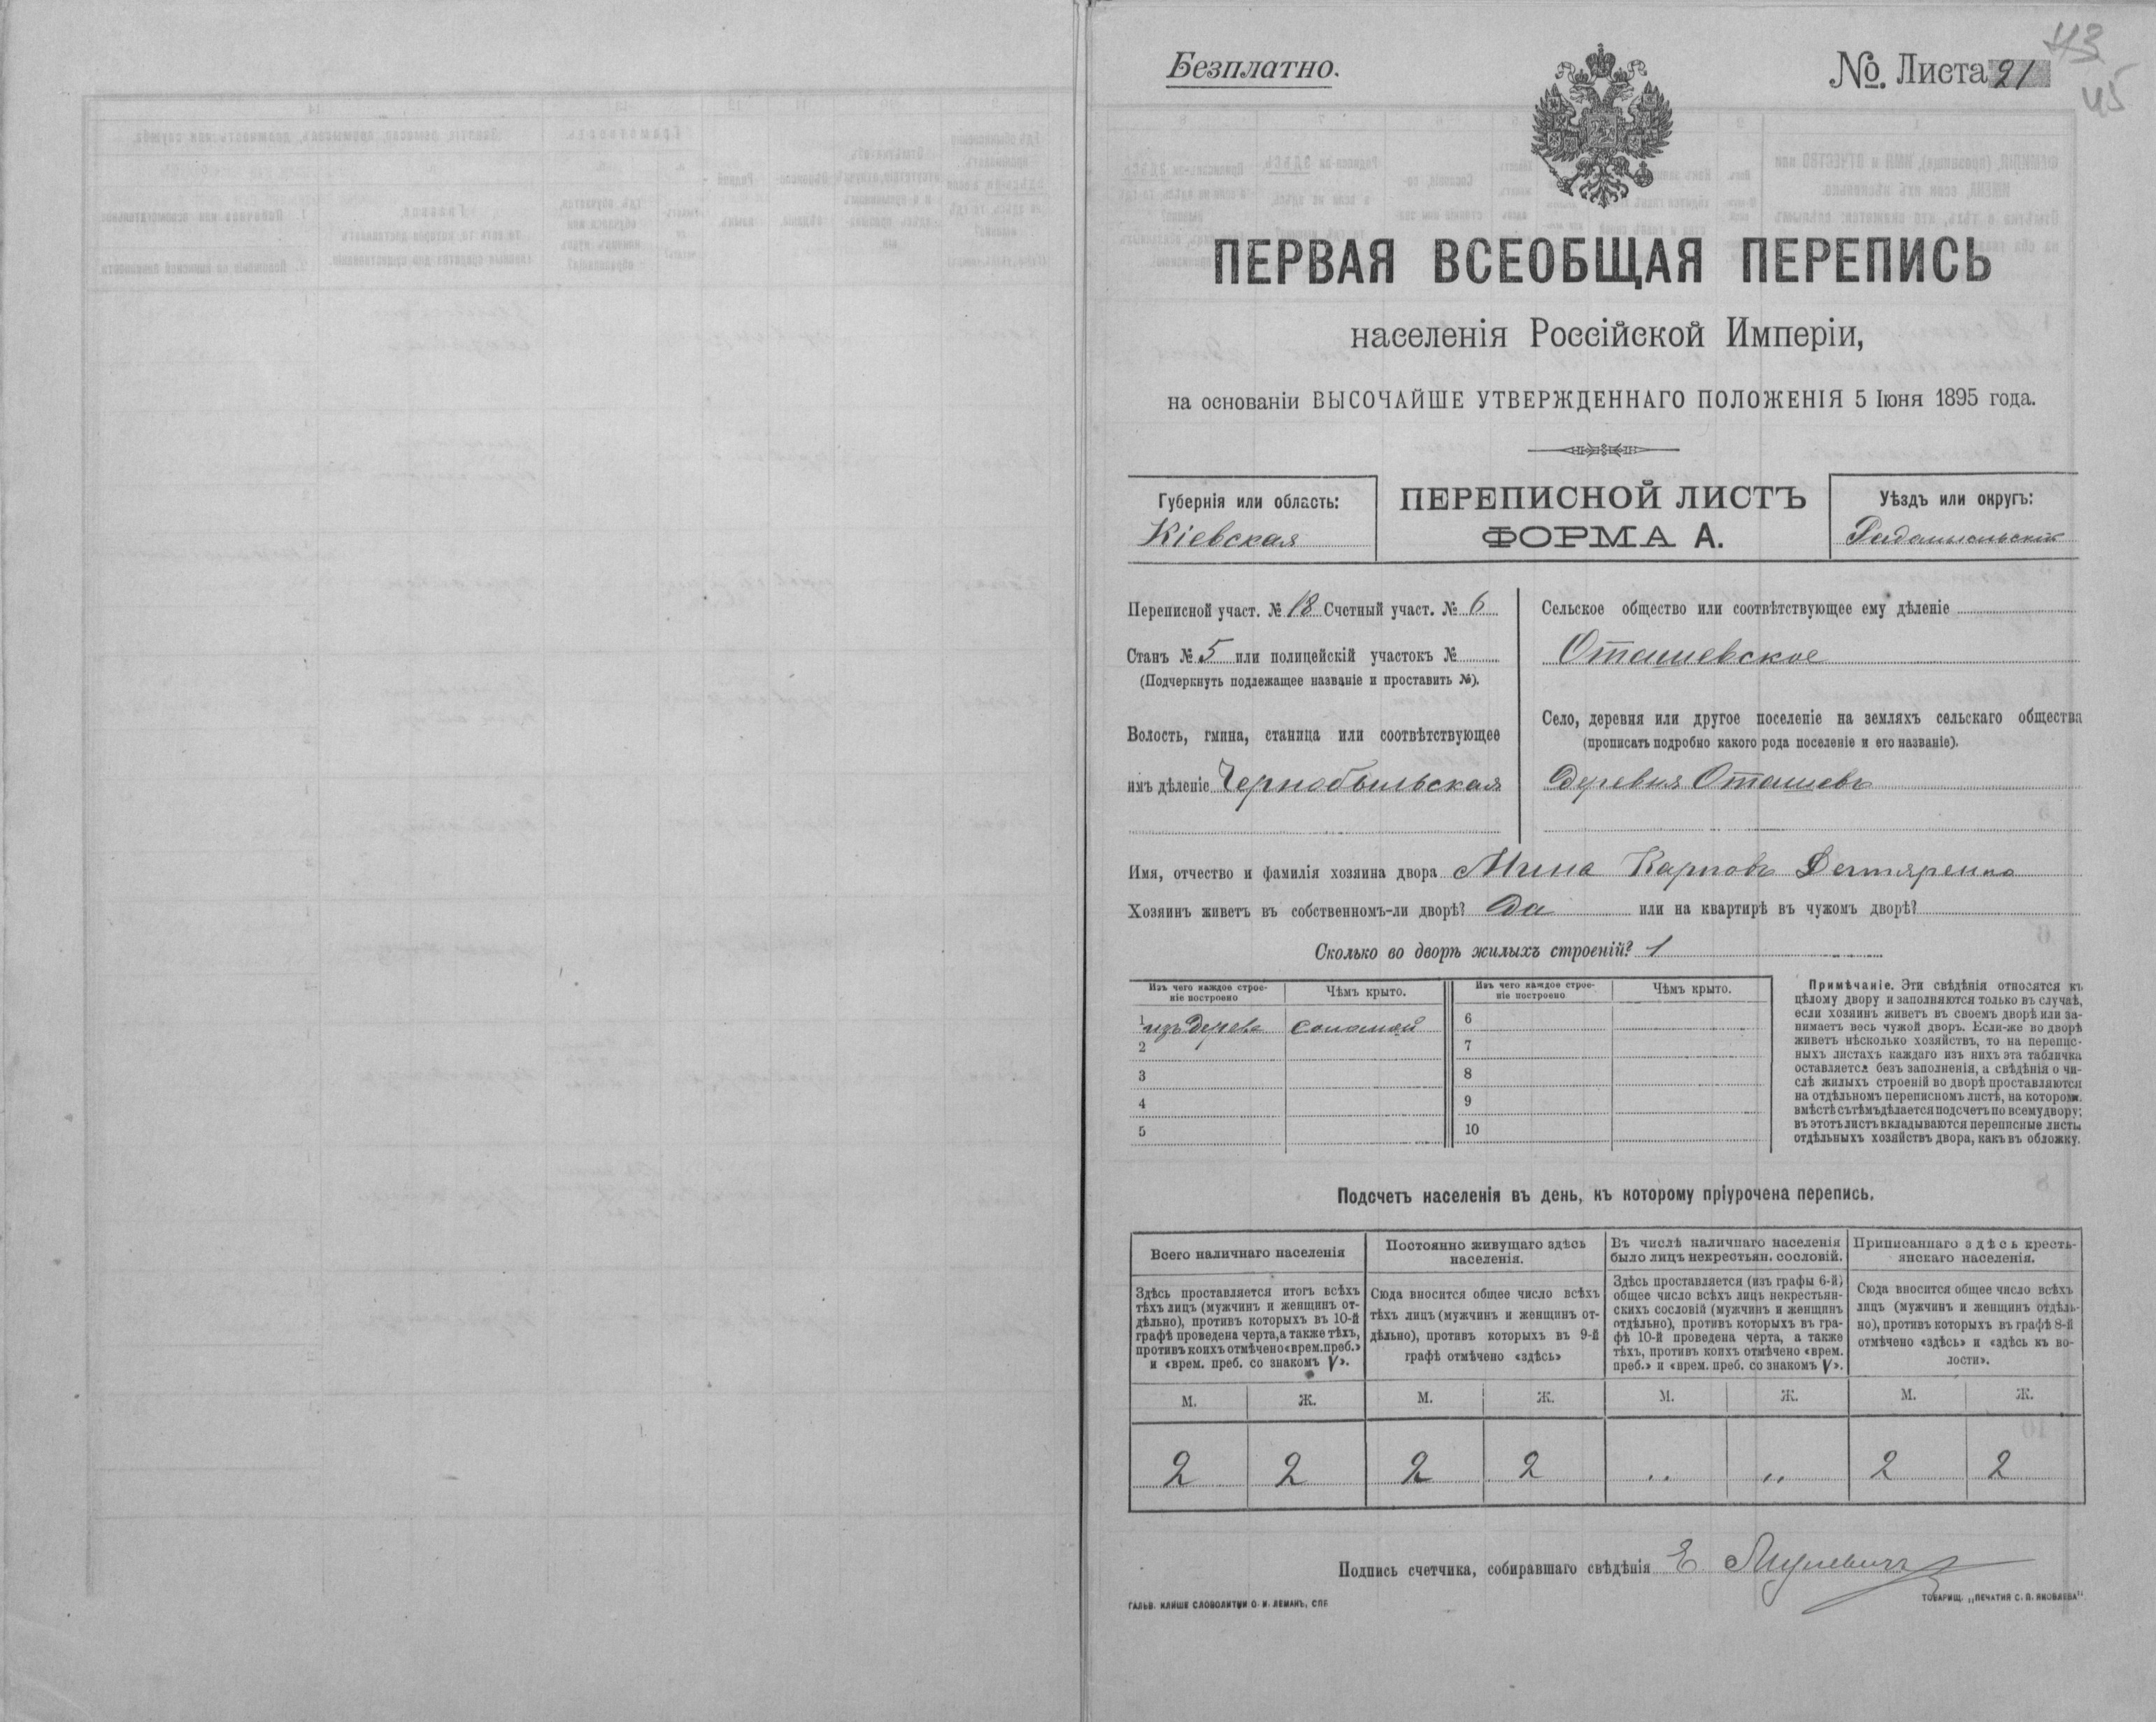 Безплатно.
№ Листа 21
43
45
ПЕРВАЯ ВСЕОБЩАЯ ПЕРЕПИСЬ
населенія Россійской Имперіи,
на основаніи ВЫСОЧАЙШЕ УТВЕРЖДЕННАГО ПОЛОЖЕНІЯ 5 Іюня 1895 года.
Губернія или область:
Кіевская
ПЕРЕПИСНОЙ ЛИСТЪ
ФОРМА А.
Уѣздъ или округъ:
Радомысльскій
Переписной участ. № 18 Счетный участ. № 6
Станъ № 5 или полицейскій участокъ №
(Подчеркнуть подлежащее названіе и проставить №).
Волость, гмина, станица или соотвѣтствующее
имъ дѣленіе Чернобыльская
Сельское общество или соотвѣтствующее ему дѣленіе
Оташевское
Село, деревня или другое поселеніе на земляхъ сельскаго общества
(прописать подробно какого рода поселеніе и его названіе).
Деревня Оташевъ
Имя, отчество и фамилія хозяина двора Мина Карповъ Дегтяренко
Хозяинъ живетъ въ собственномъ-ли дворѣ? Да или на квартирѣ въ чужомъ дворѣ?
Сколько во дворѣ жилыхъ строеній? 1
Изъ чего каждое строе-
ніе построено
Чѣмъ крыто.
Изъ чего каждое строе-
ніе построено
Чѣмъ крыто.
1 изъ дерева соломой
2
3
4
5
6
7
8
9
10
Примѣчаніе. Эти свѣдѣнія относятся къ
цѣлому двору и заполняются только въ случаѣ,
если хозяинъ живетъ въ своемъ дворѣ или за-
нимаетъ весь чужой дворъ. Если-же во дворѣ
живетъ нѣсколько хозяйствъ, то на перепис-
ныхъ листахъ каждаго изъ нихъ эта табличка
оставляется безъ заполненія, а свѣдѣнія о чи-
слѣ жилыхъ строеній во дворѣ проставляются
на отдѣльномъ переписномъ листѣ, на которомъ
вмѣстѣ съ тѣмъ дѣлается подсчетъ по всему двору;
въ этотъ листъ вкладываются переписные листы
отдѣльныхъ хозяйствъ двора, какъ въ обложку.
Подсчетъ населенія въ день, къ которому пріурочена перепись.
Всего наличнаго населенія
Постоянно живущаго здѣсь
населенія.
Въ числѣ наличнаго населенія
было лицъ некрестьян. сословій.
Приписаннаго здѣсь кресть-
янскаго населенія.
Здѣсь проставляется итогъ всѣхъ
тѣхъ лицъ (мужчинъ и женщинъ от-
дѣльно), противъ которыхъ въ 10-й
графѣ проведена черта, а также тѣхъ,
противъ коихъ отмѣчено «врем. преб.»
и «врем. преб. со знакомъ V».
Сюда вносится общее число всѣхъ
тѣхъ лицъ (мужчинъ и женщинъ от-
дѣльно), противъ которыхъ въ 9-й
графѣ отмѣчено «здѣсь»
Здѣсь проставляется (изъ графы 6-й)
общее число всѣхъ лицъ некрестьян-
скихъ сословій (мужчинъ и женщинъ
отдѣльно), противъ которыхъ въ гра-
фѣ 10-й проведена черта, а также
тѣхъ, противъ коихъ отмѣчено «врем.
преб.» и «врем. преб. со знакомъ V».
Сюда вносится общее число всѣхъ
лицъ (мужчинъ и женщинъ отдѣль-
но), противъ которыхъ въ графѣ 8-й
отмѣчено «здѣсь» и «здѣсь къ во-
лости».
М. Ж. М. Ж. М. Ж. М. Ж.
2 2 2 2 „ „ 2 2
Подпись счетчика, собиравшаго свѣдѣнія Е
ГАЛЬВ. КЛИШЕ СЛОВОЛИТНИ О. И. ЛЕМАНЪ, СПБ
ТОВАРИЩ. „ПЕЧАТНЯ С. П. ЯКОВЛЕВА"